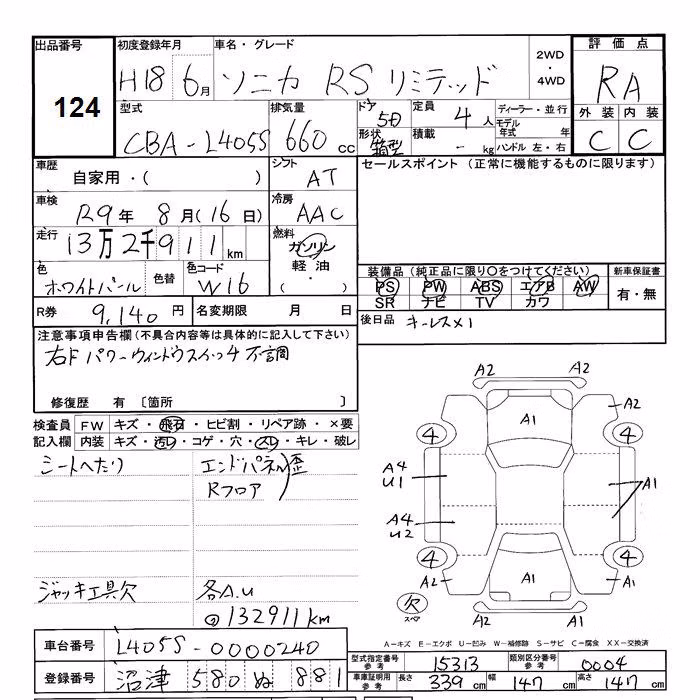 出品番号 初度登録年月 車名・グレード 評価点
124 H18 6月 ソニカ RS リミテッド 2WD・4WD RA
型式 排気量 ドア 定員 ディーラー・並行 外装 内装
CBA-L405S 660cc 5D 4人 モデル年式 年 C C
形状 箱型 積載 - kg ハンドル 左・右
車歴 シフト セールスポイント (正常に機能するものに限ります)
自家用・( ) AT
車検 冷房
R9年 8月(16日) AAC
走行 燃料
13万2千911km ガソリン
軽油
・
( )
色 色替 色コード 装備品 (純正品に限り○をつけてください) 新車保証書
ホワイトパール W16 PS PW ABS エアB AW 有・無
SR ナビ TV カワ
R券 9,140円 名変期限 月 日 後日品 キーレス×1
注意事項申告欄(不具合内容等は具体的に記入して下さい)
右F パワーウィンドウスイッチ不調
修復歴 有 〔箇所 〕
検査員 FW キズ・飛石・ヒビ割・リペア跡・×要
記入欄 内装 キズ・汚レ・コゲ・穴・スレ・キレ・破レ
シートへたり エンドパネル 歪
Rフロア
ジャッキ工具欠 各A.U
@132911km
A2 A2
A2
A1
4 4
A4
U1
A1
A4
U2
4 4
A2 A1 A1
欠
スペア
A-キズ E-エクボ U-凹み W-補修跡 S-サビ C-腐食 XX-交換済
車台番号 L405S-0000240
型式指定番号 参考 15313 類別区分番号 参考 0004
登録番号 沼津 580 ぬ 881
車庫証明用 参考 長さ 339cm 幅 147cm 高さ 147cm